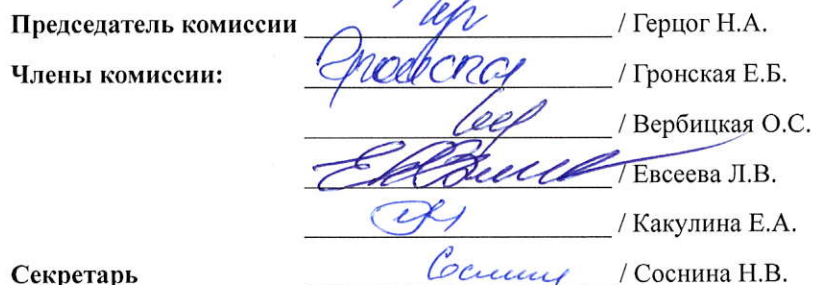 Председатель комиссии / Герцог Н.А.
Члены комиссии: / Гронская Е.Б.
/ Вербицкая О.С.
/ Евсеева Л.В.
/ Какулина Е.А.
Секретарь / Соснина Н.В.